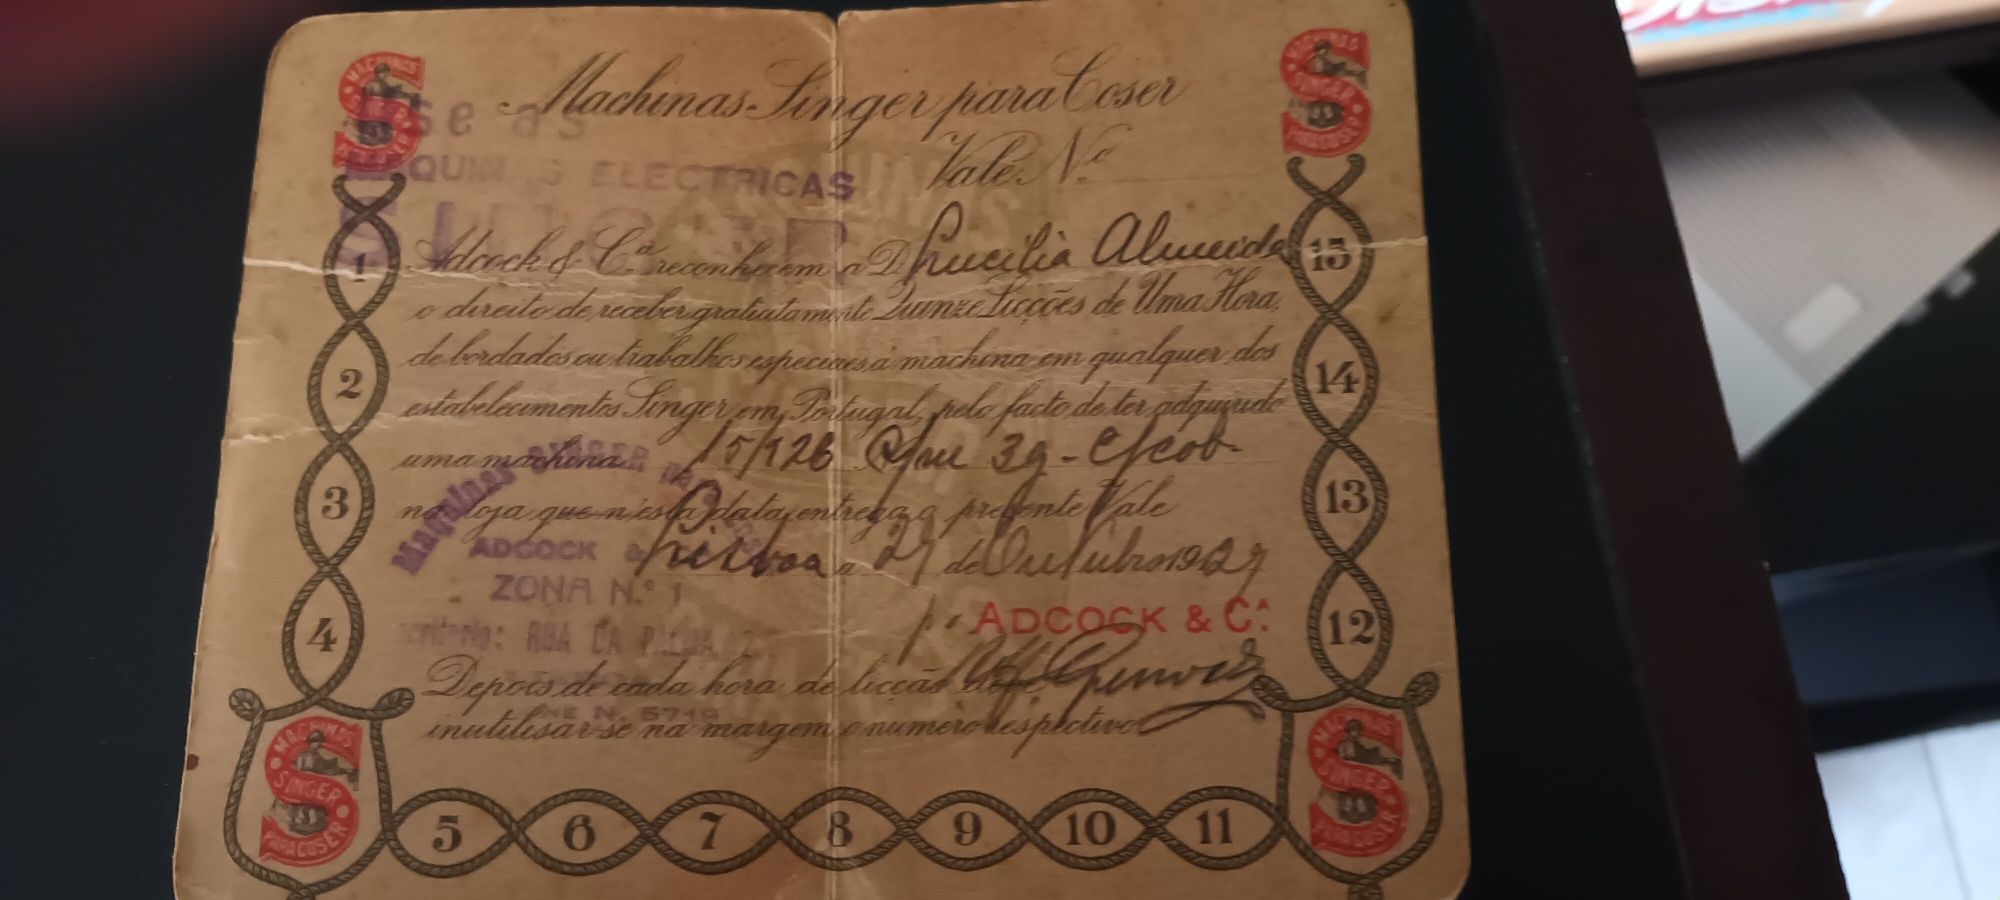 MACHINAS SINGER PARA COSER
MACHINAS SINGER PARA COSER
Machinas Singer para Coser
Use as
MAQUINAS ELECTRICAS
SINGER
Vale N.º
Adcock & C.ª reconhecem a D. Lucilia Almeida
o direito de receber gratuitamente Quinze Licções de Uma Hora,
de bordados ou trabalhos especiaes á machina em qualquer dos
estabelecimentos Singer em Portugal, pelo facto de ter adquirido
uma machina 15/126
na loja que n'esta data entrega o presente Vale
Maquinas SINGER para
ADCOCK &
Lisboa a 27 de Outubro 1927
ZONA N.º 1
p. ADCOCK & C.ª
RUA DA PALMA
Depois de cada hora de licção deve
inutilisar-se na margem o numero respectivo
1
2
3
4
5 6 7 8 9 10 11
12
13
14
15
MACHINAS SINGER PARA COSER
MACHINAS SINGER PARA COSER